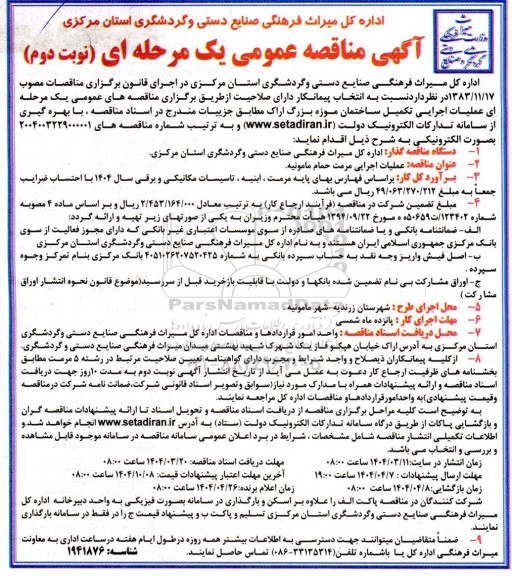 اداره کل میراث فرهنگی صنایع دستی وگردشگری استان مرکزی
آگهی مناقصه عمومی یک مرحله ای (نوبت دوم)
اداره کل میراث فرهنگی صنایع دستی وگردشگری استان مرکزی در اجرای قانون برگزاری مناقصات مصوب
۱۳۸۳/۱۱/۱۷در نظرداردنسبت به انتخاب پیمانکار دارای صلاحیت ازطریق برگزاری مناقصه های عمومی یک مرحله
ای عملیات اجرایی تکمیل ساختمان موزه بزرگ اراک مطابق جزییات مندرج در اسناد مناقصه ، با بهره گیری
از سامانه تدارکات الکترونیک دولت (www.setadiran.ir) و به ترتیب شماره مناقصه های ۲۰۰۴۰۰۳۲۲۹۰۰۰۰۰۱
بصورت الکترونیکی به شرح ذیل اقدام نماید:
۱- دستگاه مناقصه گذار: اداره کل میراث فرهنگی صنایع دستی وگردشگری استان مرکزی.
۲- عنوان مناقصه: عملیات اجرایی مرمت حمام مامونیه.
۳- برآورد کل کار: براساس فهارس بهای پایه مرمت ، ابنیه ، تاسیسات مکانیکی و برقی سال ۱۴۰۴ با احتساب ضرایب
جمعاً به مبلغ ۴۹/۰۶۳/۲۷۰/۲۱۲ ریال می باشد.
۴- مبلغ تضمین شرکت در مناقصه (فرآیند ارجاع کار) به ترتیب معادل ۲/۴۵۳/۱۶۴/۰۰۰ ریال و بر اساس ماده ۴ مصوبه
شماره ۱۲۳۴۰۲/ت۵۰۶۵۹ ه مورخ ۱۳۹۴/۰۹/۲۲ هیات محترم وزیران به یکی از صورتهای زیر تهیه و ارائه گردد:
الف - ضمانتنامه بانکی و یا ضمانتنامه های صادره از سوی موسسات اعتباری غیر بانکی که دارای مجوز فعالیت از سوی
بانک مرکزی جمهوری اسلامی ایران هستند و به نام اداره کل میراث فرهنگی صنایع دستی وگردشگری استان مرکزی
ب- اصل فیش واریز وجه نقد به حساب سپرده بانکی به شماره ۴۰۵۱۰۲۶۲۰۷۵۲۰۴۳۵ بانک مرکزی بنام تمرکز وجوه
سپرده .
ج- اوراق مشارکت بی نام تضمین شده بانکها و دولت با قابلیت بازخرید قبل از سررسید(موضوع قانون نحوه انتشار اوراق
مشارکت)
۵- محل اجرای طرح : شهرستان زرندیه- شهر مامونیه.
۶- مهلت اجرای کار : پانزده ماه شمسی
۷- محل دریافت اسناد مناقصه : واحد امور قراردادها و مناقصات اداره کل میراث فرهنگی صنایع دستی وگردشگری
استان مرکزی به آدرس اراک خیابان هپکو فاز یک شهرک شهید بهشتی میدان میراث فرهنگی صنایع دستی و گردشگری
۸- ازکلیه پیمانکاران ذیصلاح و واجد شرایط و مجرب دارای گواهینامه تعیین صلاحیت مرتبط در رشته ۵ مرمت مطابق
بخشنامه های ظرفیت ارجاع کار دعوت به عمل می آید از تاریخ انتشار آگهی نوبت دوم به مدت ۱۰روز جهت دریافت
اسناد مناقصه و ارائه پیشنهادات همراه با مدارک مورد نیاز(سوابق وتصویر اسناد قانونی شرکت،ضمانت نامه شرکت درمناقصه
وقیمت پیشنهادی)به واحدامورقراردادهاو مناقصات اداره کل مراجعه نمایند.
به توضیح است کلیه مراحل برگزاری مناقصه از دریافت اسناد مناقصه و تحویل اسناد تا ارائه پیشنهادات مناقصه گران
و بازگشایی پاکات از طریق درگاه سامانه تدارکات الکترونیک دولت (ستاد) به آدرس www.setadiran.ir انجام خواهد شد.و
اطلاعات تکمیلی انتشار مناقصه شامل مشخصات ، شرایط در برد اعلان عمومی سامانه مناقصه در سامانه موجود قابل مشاهده
و بررسی و انتخاب می باشد.
زمان انتشار در سایت:۱۴۰۴/۰۳/۱۱ ساعت ۰۸:۰۰
مهلت دریافت اسناد مناقصه: ۱۴۰۴/۰۳/۲۰ ساعت ۰۸:۰۰
مهلت ارسال پیشنهادات : ۱۴۰۴/۰۴/۷ ساعت ۱۹:۰۰
آخرین مهلت اعتبار پیشنهادات قیمت: ۱۴۰۴/۱۰/۰۸ ساعت ۰۸:۰۰
زمان بازگشایی:۱۴۰۴/۰۴/۸ ساعت ۰۸:۰۰
زمان اعلام برنده:۱۴۰۴/۰۴/۲۶ ساعت ۰۸:۰۰
شرکت کنندگان در مناقصه پاکت الف را علاوه بر اسکن و بارگذاری در سامانه بصورت فیزیکی به واحد دبیرخانه اداره کل
میراث فرهنگی صنایع دستی وگردشگری استان مرکزی تسلیم و پاکت ب و پیشنهاد قیمت ج را در فقط در سامانه بارگذاری
نمایند.
۹- ضمناً متقاضیان میتوانند جهت دسترسی به اطلاعات بیشتر همه روزه درطول ایام هفته درساعت اداری به معاونت
میراث فرهنگی اداره کل یا باشماره تلفن(۳۳۱۳۵۳۱۴-۰۸۶) تماس حاصل نمایند.
شناسه: ۱۹۴۱۸۷۶
ParsNamadData